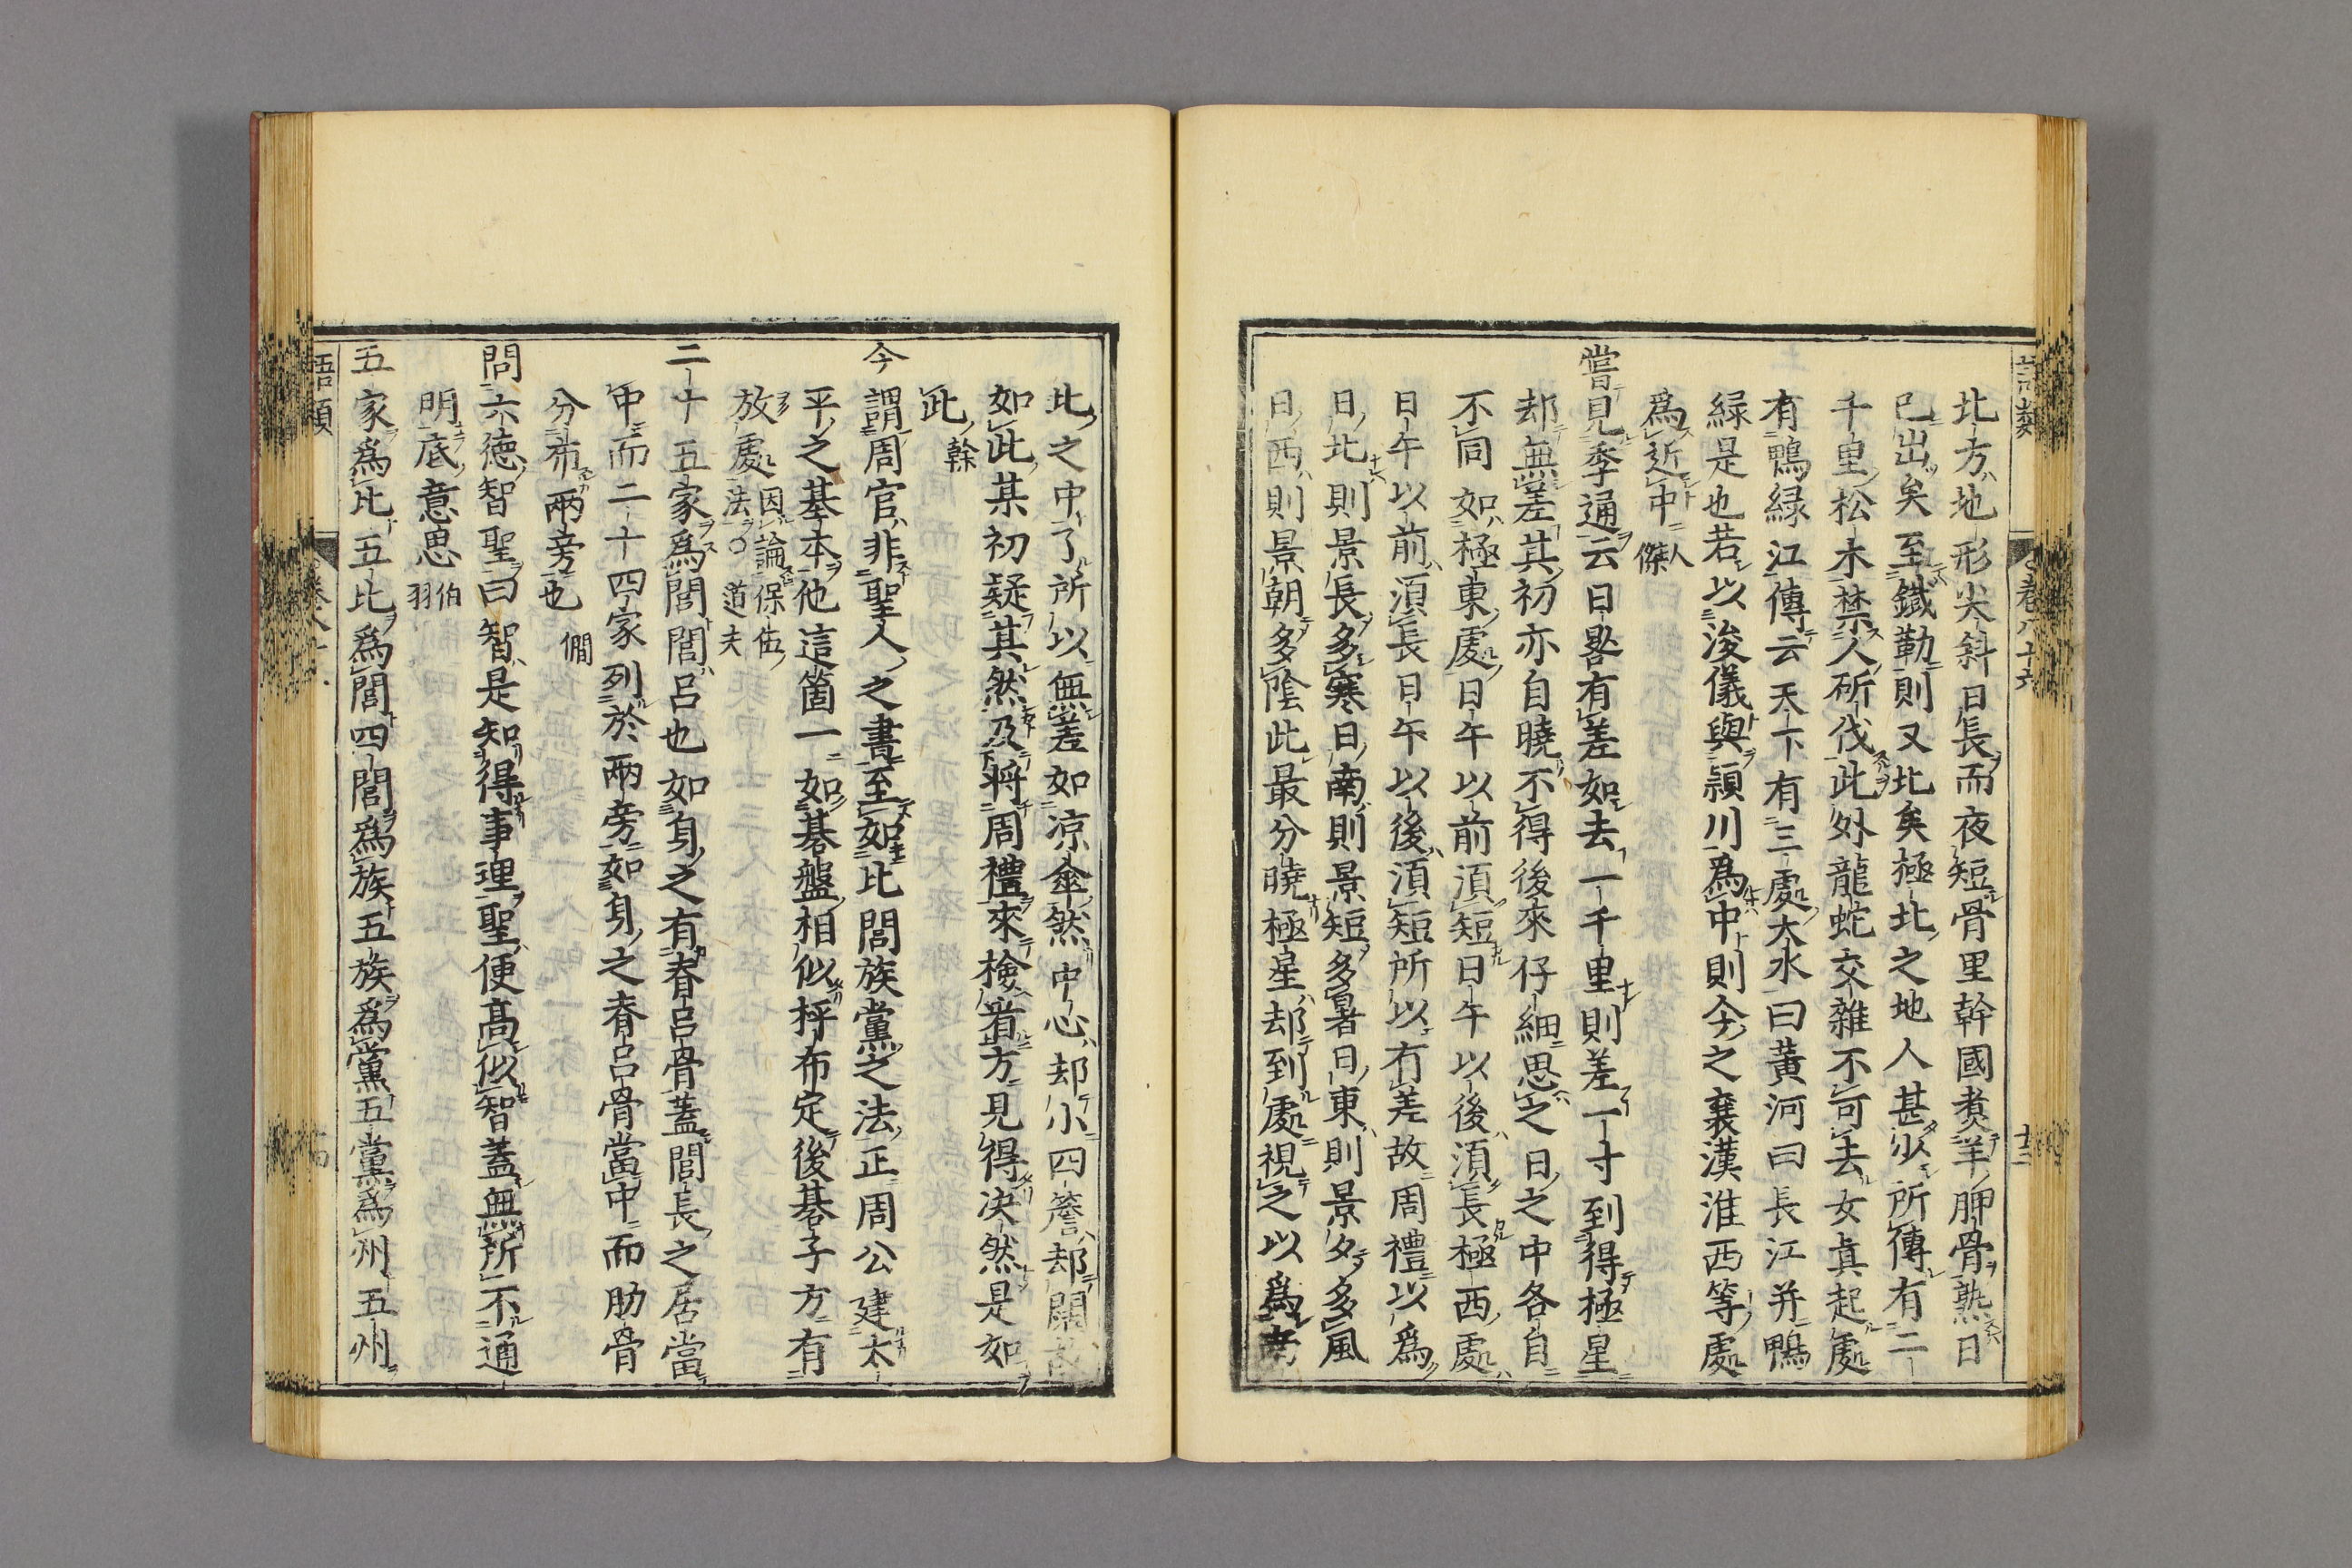 語類 卷八十六 十三
北方地形尖斜日長而夜短骨里幹國煑羊胛骨熟日
已出矣至鐵勒則又北矣極北之地人甚少所傳有二
千里松木禁人斫伐此外龍蛇交雜不可去女真起處
有鴨緑江傳云天下有三處大水曰黃河曰長江并鴨
緑是也若以浚儀與潁川爲中則今之襄漢淮西等處
爲近中人傑
嘗見季通云日晷有差如去一千里則差一寸到得極星
却無差其初亦自曉不得後來仔細思之日之中各自
不同如極東處日午以前須短日午以後須長極西處
日午以前須長日午以後須短所以有差故周禮以爲
日北則景長多寒日南則景短多暑日東則景夕多風
日西則景朝多陰此最分曉極星却到處視之以爲南
北之中了所以無差如凉傘然中心却小四簷却闊故
如此某初疑其然及將周禮來檢看方見得决然是如
此榦
今謂周官非聖人之書至如比閭族黨之法正周公建太
平之基本他這箇一如碁盤相似枰布定後碁子方有
放處因論保伍法○道夫
二十五家爲閭閭呂也如身之有脊呂骨蓋閭長之居當
中而二十四家列於兩旁如身之脊呂骨當中而肋骨
分布兩旁也僩
問六德智聖曰智是知得事理聖便高似智蓋無所不通
明底意思伯羽
五家爲比五比爲閭四閭爲族五族爲黨五黨爲州五州
語類